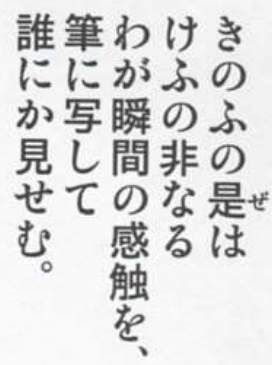 きのふの是は
けふの非なる
わが瞬間の感触を、
筆に写して
誰にか見せむ。
ぜ